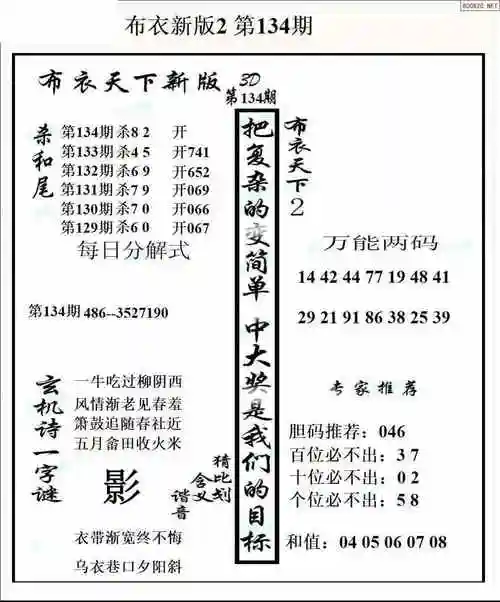 BOOK20.NET
布衣新版2 第134期
布衣天下新版 3D
第134期
杀和尾
第134期 杀8 2 开
第133期 杀4 5 开741
第132期 杀6 9 开652
第131期 杀7 9 开069
第130期 杀7 0 开066
第129期 杀6 0 开067
每日分解式
第134期 486--3527190
玄机诗一字谜
一牛吃过柳阴西
风情渐老见春羞
箫鼓追随春社近
五月畲田收火米
影
猜比划
含义
谐音
衣带渐宽终不悔
乌衣巷口夕阳斜
把复杂的变简单 中大奖是我们的目标
布衣天下2
万能两码
14 42 44 77 19 48 41
29 21 91 86 38 25 39
专家推荐
胆码推荐：046
百位必不出：3 7
十位必不出：0 2
个位必不出：5 8
和值：04 05 06 07 08